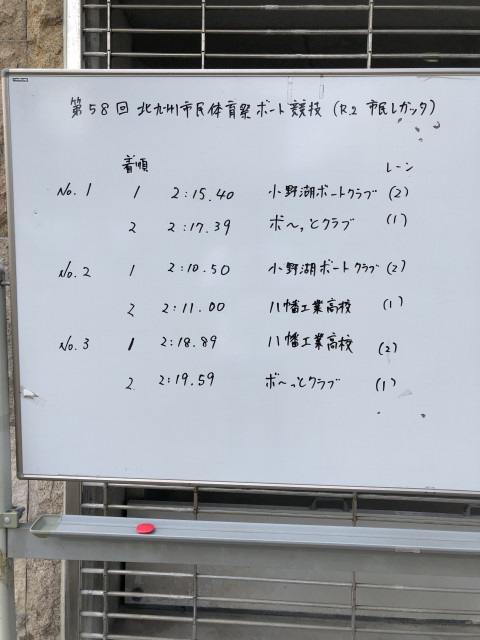 第58回 北九州市民体育祭ボート競技 (R.2 市民レガッタ)
着順 レーン
No.1 1 2:15.40 小野湖ボートクラブ (2)
2 2:17.39 ボ〜っとクラブ (1)
No.2 1 2:10.50 小野湖ボートクラブ (2)
2 2:11.00 八幡工業高校 (1)
No.3 1 2:18.89 八幡工業高校 (2)
2 2:19.59 ボ〜っとクラブ (1)